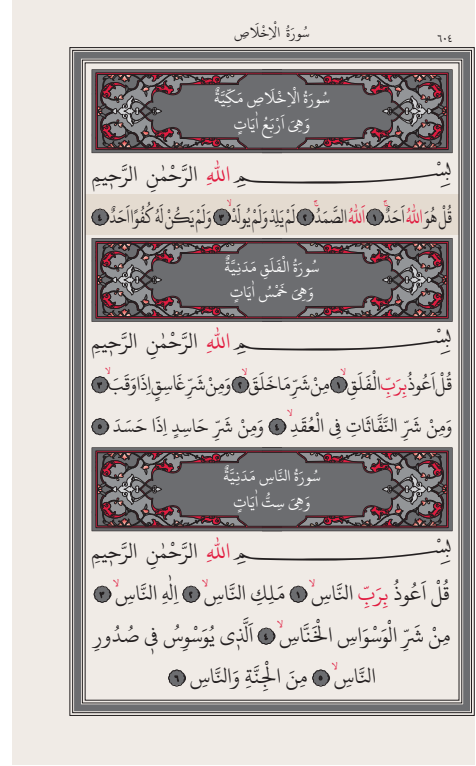 سُورَةُ الْاِخْلَاصِ
٦٠٤
سُورَةُ الْاِخْلَاصِ مَكِّيَّةٌ
وَهِىَ اَرْبَعُ اٰيَاتٍ
بِسْمِ اللّٰهِ الرَّحْمٰنِ الرَّحِيمِ
قُلْ هُوَ اللّٰهُ اَحَدٌۚ ١ اَللّٰهُ الصَّمَدُۚ ٢ لَمْ يَلِدْ وَلَمْ يُولَدْۙ ٣ وَلَمْ يَكُنْ لَهُ كُفُوًا اَحَدٌ ٤
سُورَةُ الْفَلَقِ مَدَنِيَّةٌ
وَهِىَ خَمْسُ اٰيَاتٍ
بِسْمِ اللّٰهِ الرَّحْمٰنِ الرَّحِيمِ
قُلْ اَعُوذُ بِرَبِّ الْفَلَقِۙ ١ مِنْ شَرِّ مَا خَلَقَۙ ٢ وَمِنْ شَرِّ غَاسِقٍ اِذَا وَقَبَۙ ٣
وَمِنْ شَرِّ النَّفَّاثَاتِ فِى الْعُقَدِۙ ٤ وَمِنْ شَرِّ حَاسِدٍ اِذَا حَسَدَ ٥
سُورَةُ النَّاسِ مَدَنِيَّةٌ
وَهِىَ سِتُّ اٰيَاتٍ
بِسْمِ اللّٰهِ الرَّحْمٰنِ الرَّحِيمِ
قُلْ اَعُوذُ بِرَبِّ النَّاسِۙ ١ مَلِكِ النَّاسِۙ ٢ اِلٰهِ النَّاسِۙ ٣
مِنْ شَرِّ الْوَسْوَاسِ الْخَنَّاسِۙ ٤ اَلَّذِى يُوَسْوِسُ فِى صُدُورِ
النَّاسِۙ ٥ مِنَ الْجِنَّةِ وَالنَّاسِ ٦